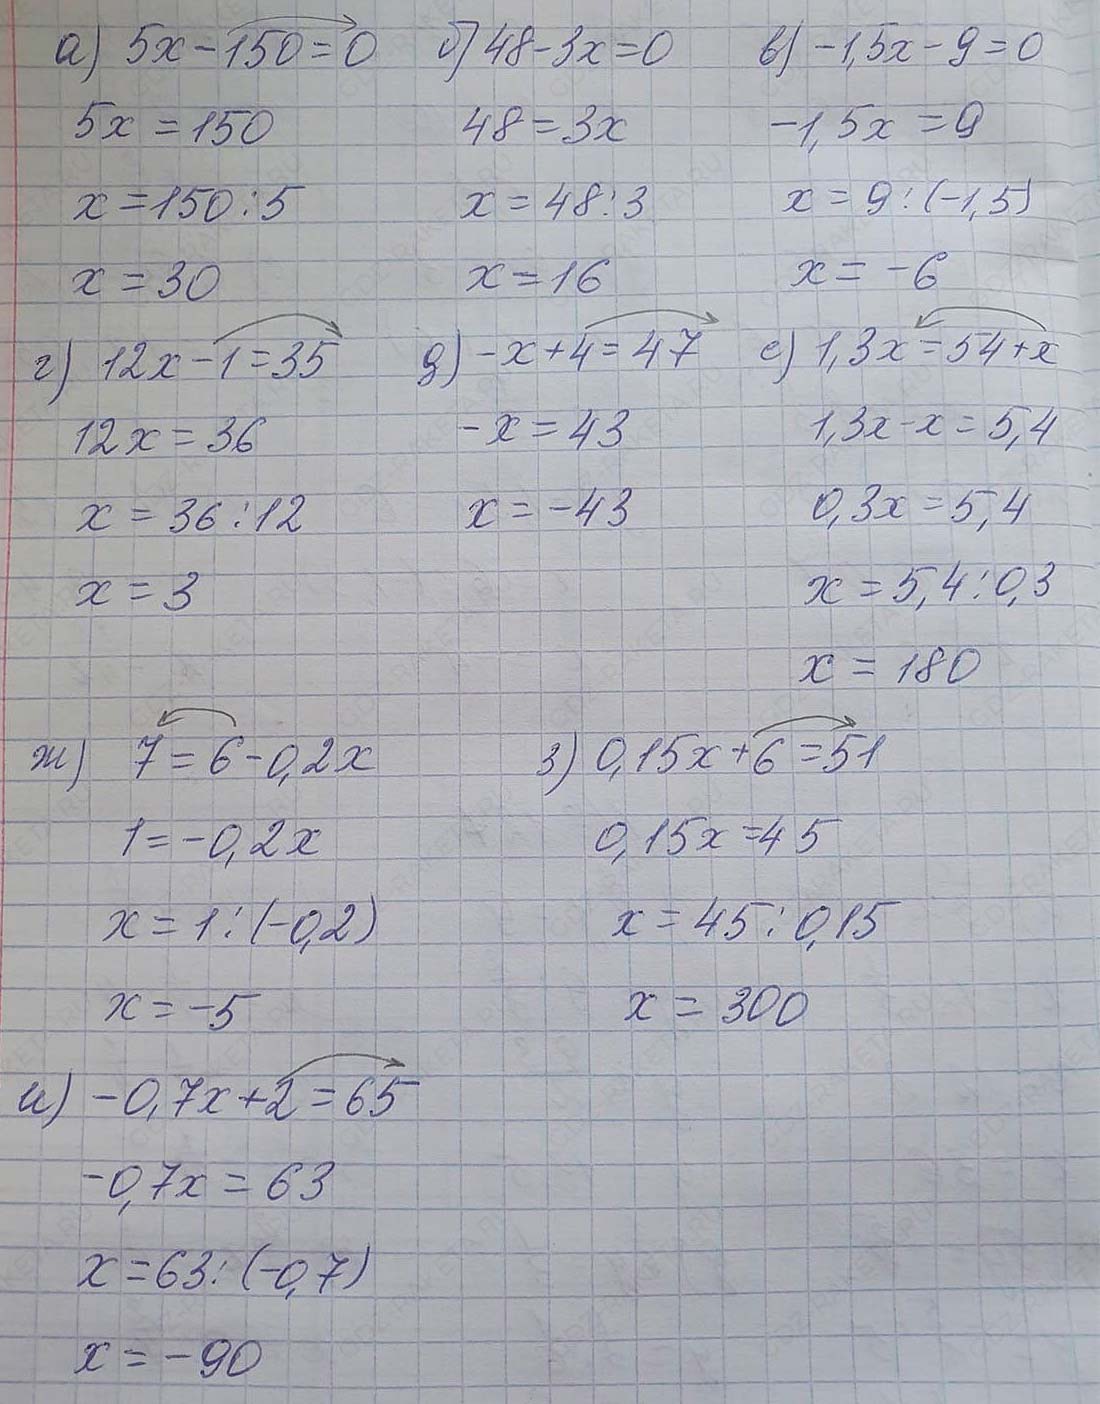 а) 5x-150=0 б) 48-3x=0 в) -1,5x-9=0
5x=150 48=3x -1,5x=9
x=150:5 x=48:3 x=9:(-1,5)
x=30 x=16 x=-6
г) 12x-1=35 д) -x+4=47 е) 1,3x=54+x
12x=36 -x=43 1,3x-x=5,4
x=36:12 x=-43 0,3x=5,4
x=3 x=5,4:0,3
x=180
ж) 7=6-0,2x з) 0,15x+6=51
1=-0,2x 0,15x=45
x=1:(-0,2) x=45:0,15
x=-5 x=300
и) -0,7x+2=65
-0,7x=63
x=63:(-0,7)
x=-90